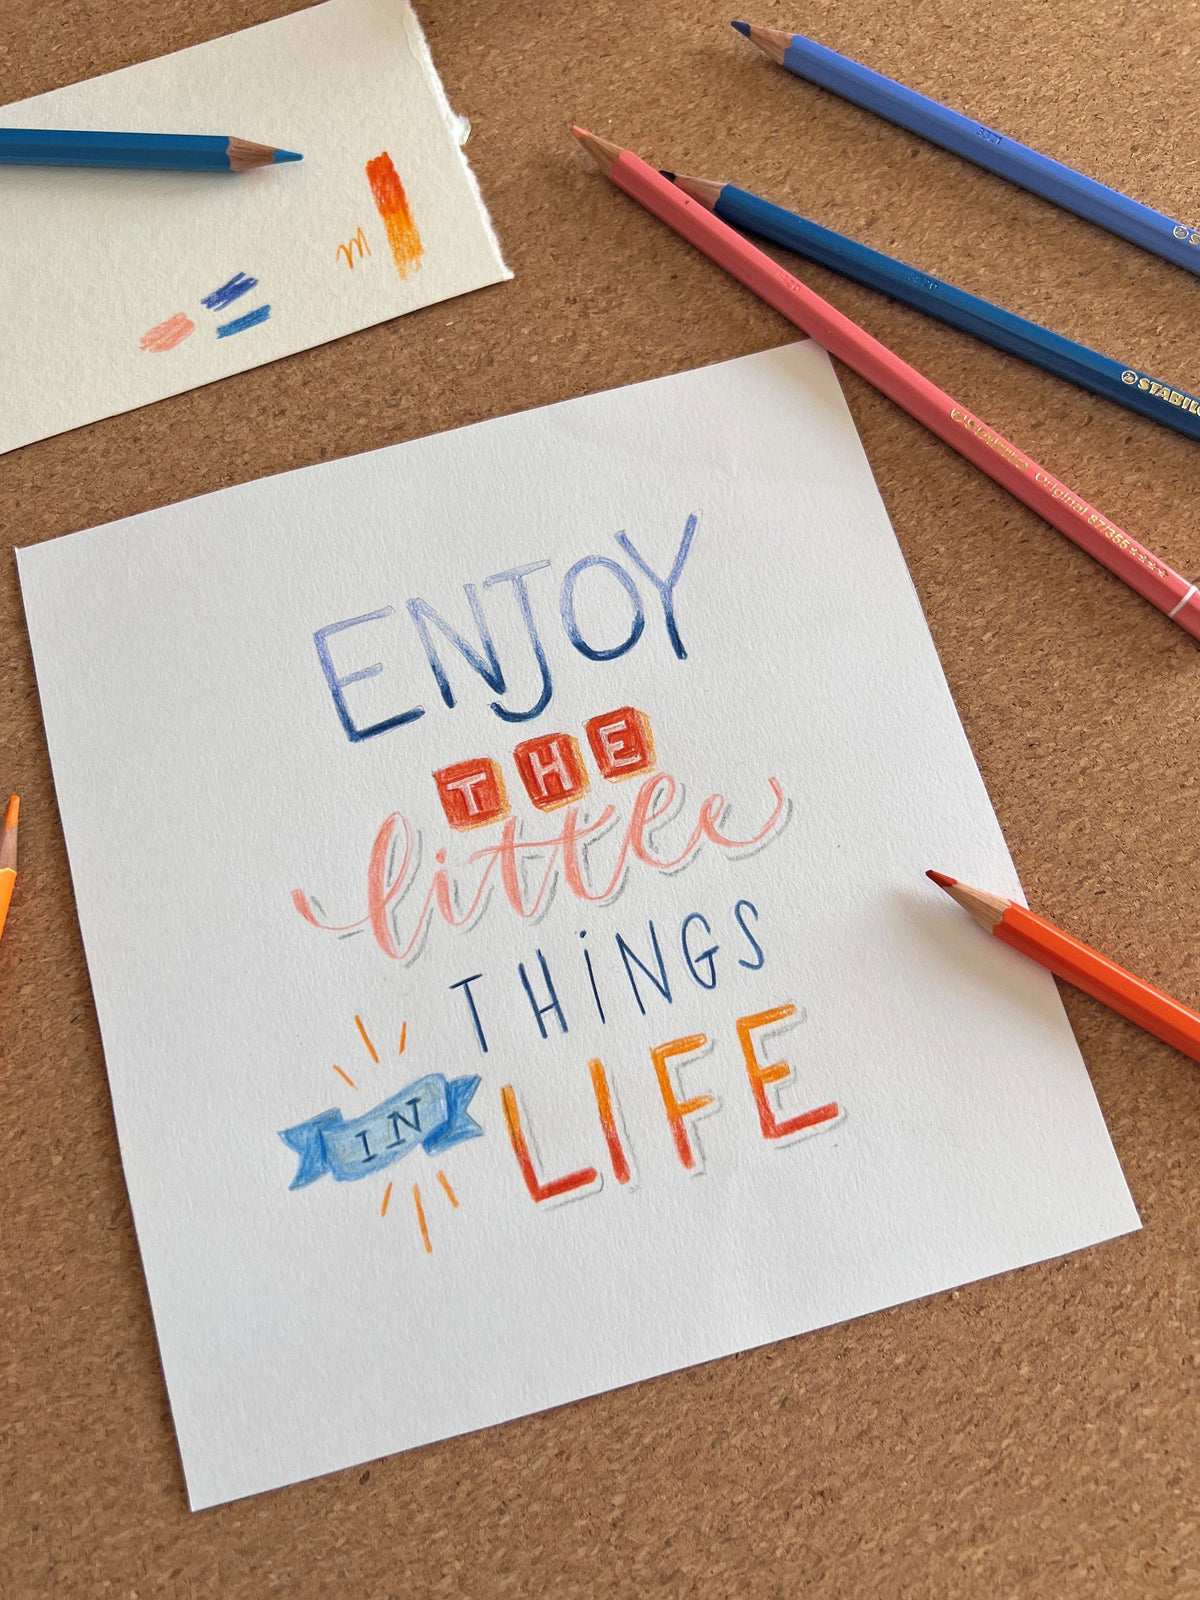 ENJOY
THE
little
THiNGS
IN LIFE
STABILO
Original 87/355